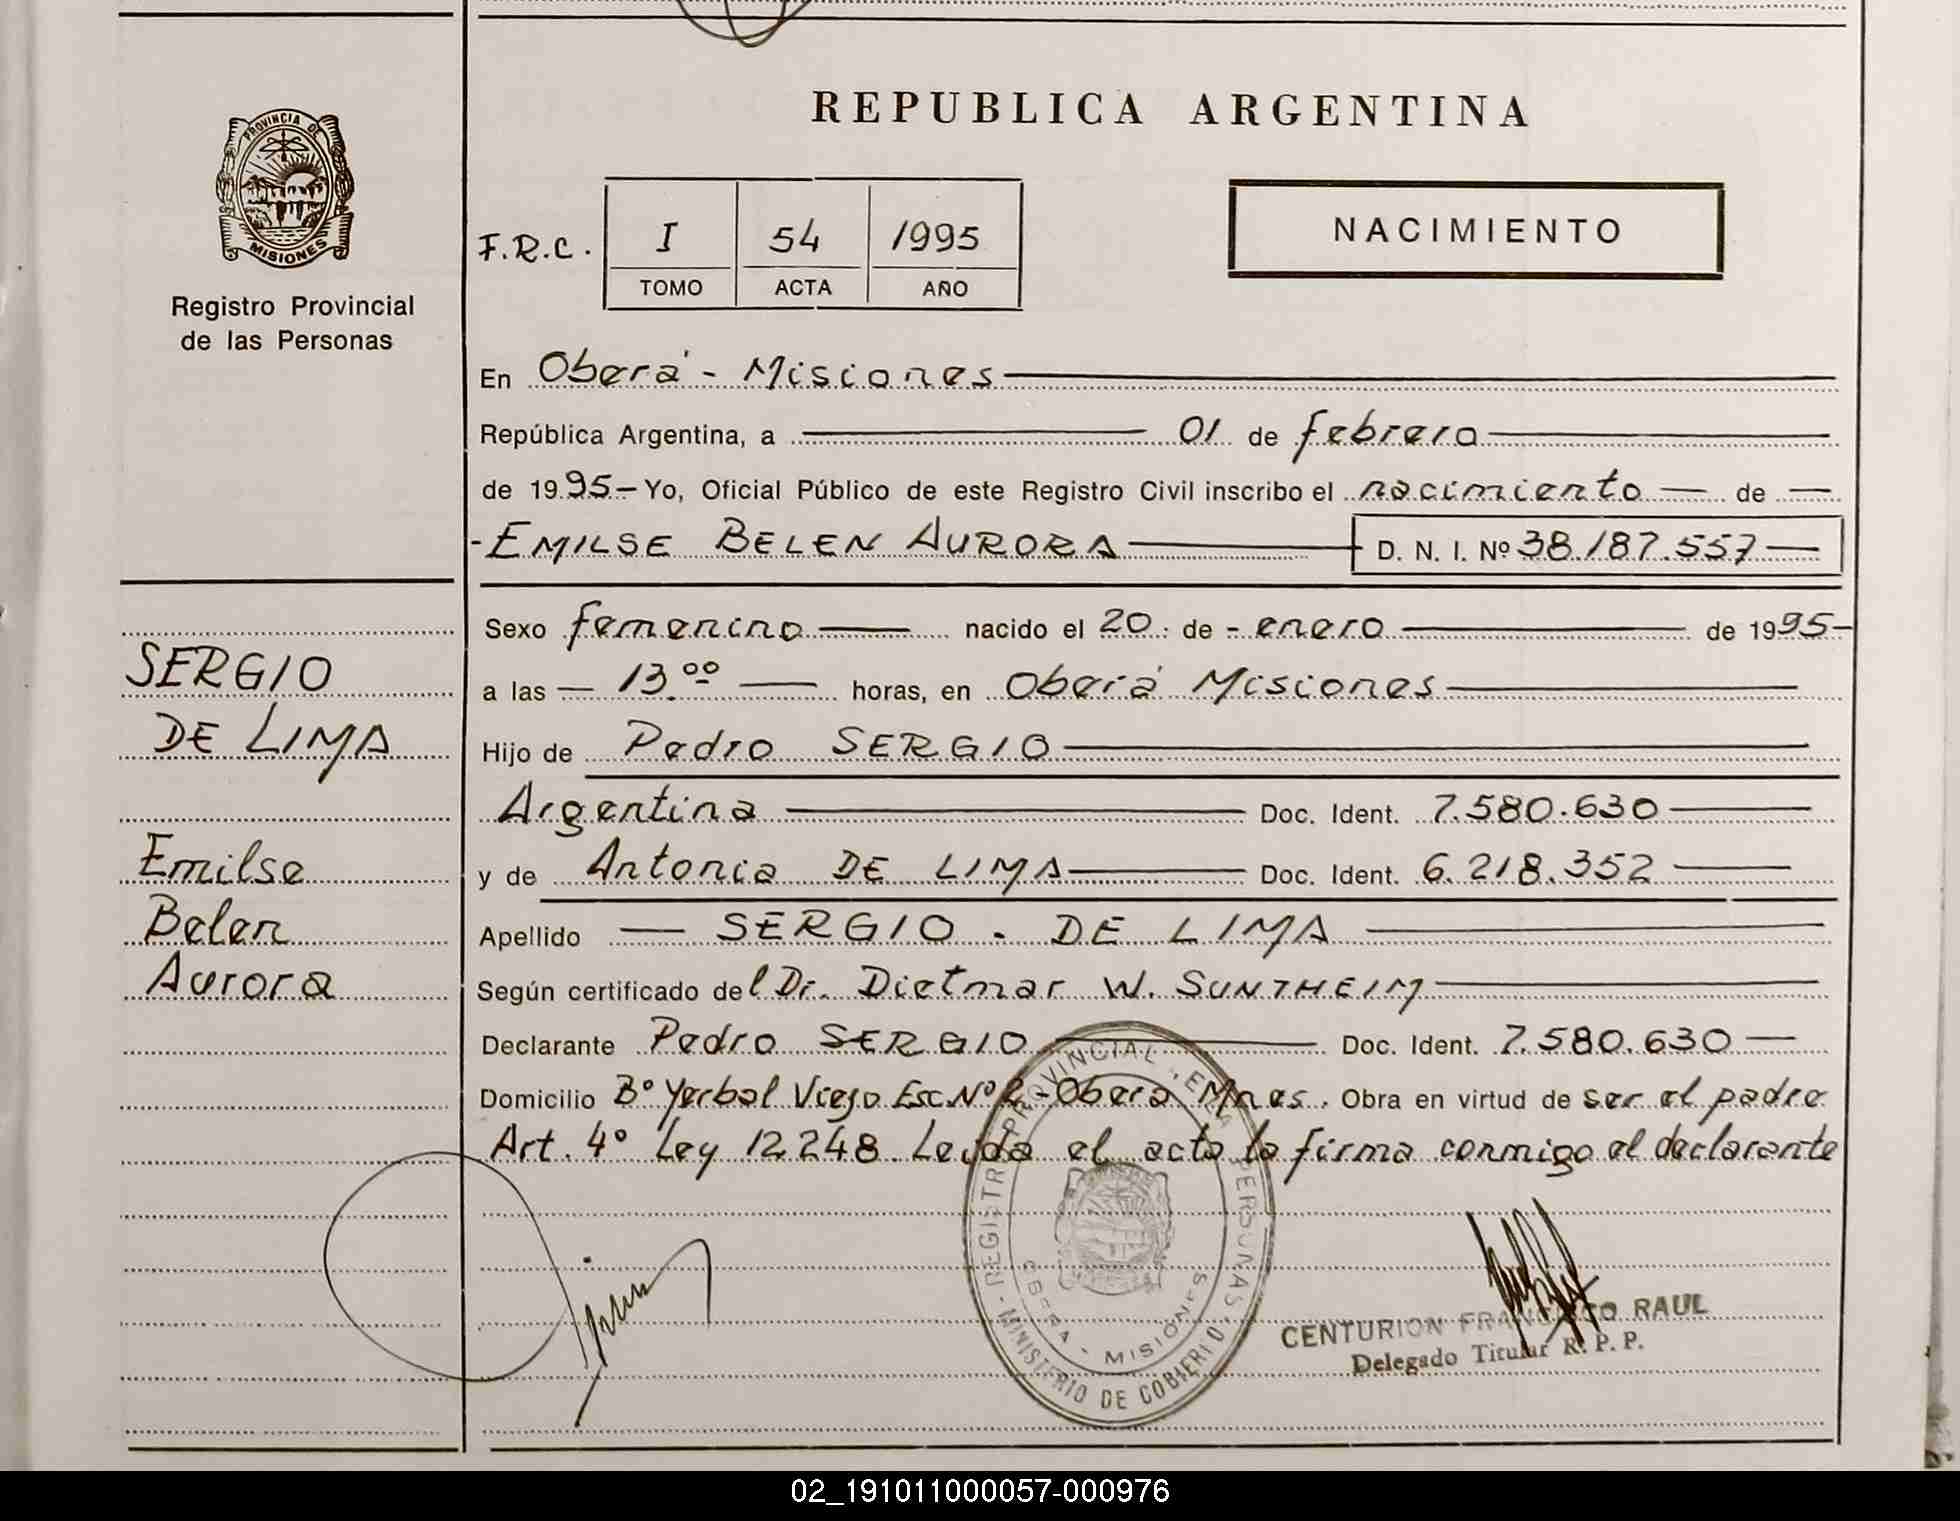 REPUBLICA ARGENTINA
PROVINCIA DE
MISIONES
Registro Provincial
de las Personas
F.R.C. I 54 1995
TOMO ACTA AÑO
NACIMIENTO
En Oberá - Misiones
República Argentina, a 01 de febrero
de 1995- Yo, Oficial Público de este Registro Civil inscribo el nacimiento de
- EMILSE BELEN AURORA D. N. I. Nº 38.187.557
Sexo femenino nacido el 20 de - enero de 1995-
a las 13.ºº horas, en Oberá Misiones
Hijo de Pedro SERGIO
Argentina Doc. Ident. 7.580.630
y de Antonia DE LIMA Doc. Ident. 6.218.352
Apellido SERGIO - DE LIMA
Según certificado del Dr. Dietmar W. SUNTHEIM
Declarante Pedro SERGIO Doc. Ident. 7.580.630
Domicilio Bº Yerbal Viejo Esc. Nº 2 - Obera Mnes. Obra en virtud de ser el padre
Art. 4º Ley 12.248. Leida el acta la firma conmigo el declarante
SERGIO
DE LIMA
Emilse
Belen
Aurora
REGISTRO PROVINCIAL DE LAS PERSONAS
MINISTERIO DE GOBIERNO
OBERA - MISIONES
CENTURION FRANCISCO RAUL
Delegado Titular R. P. P.
02_191011000057-000976